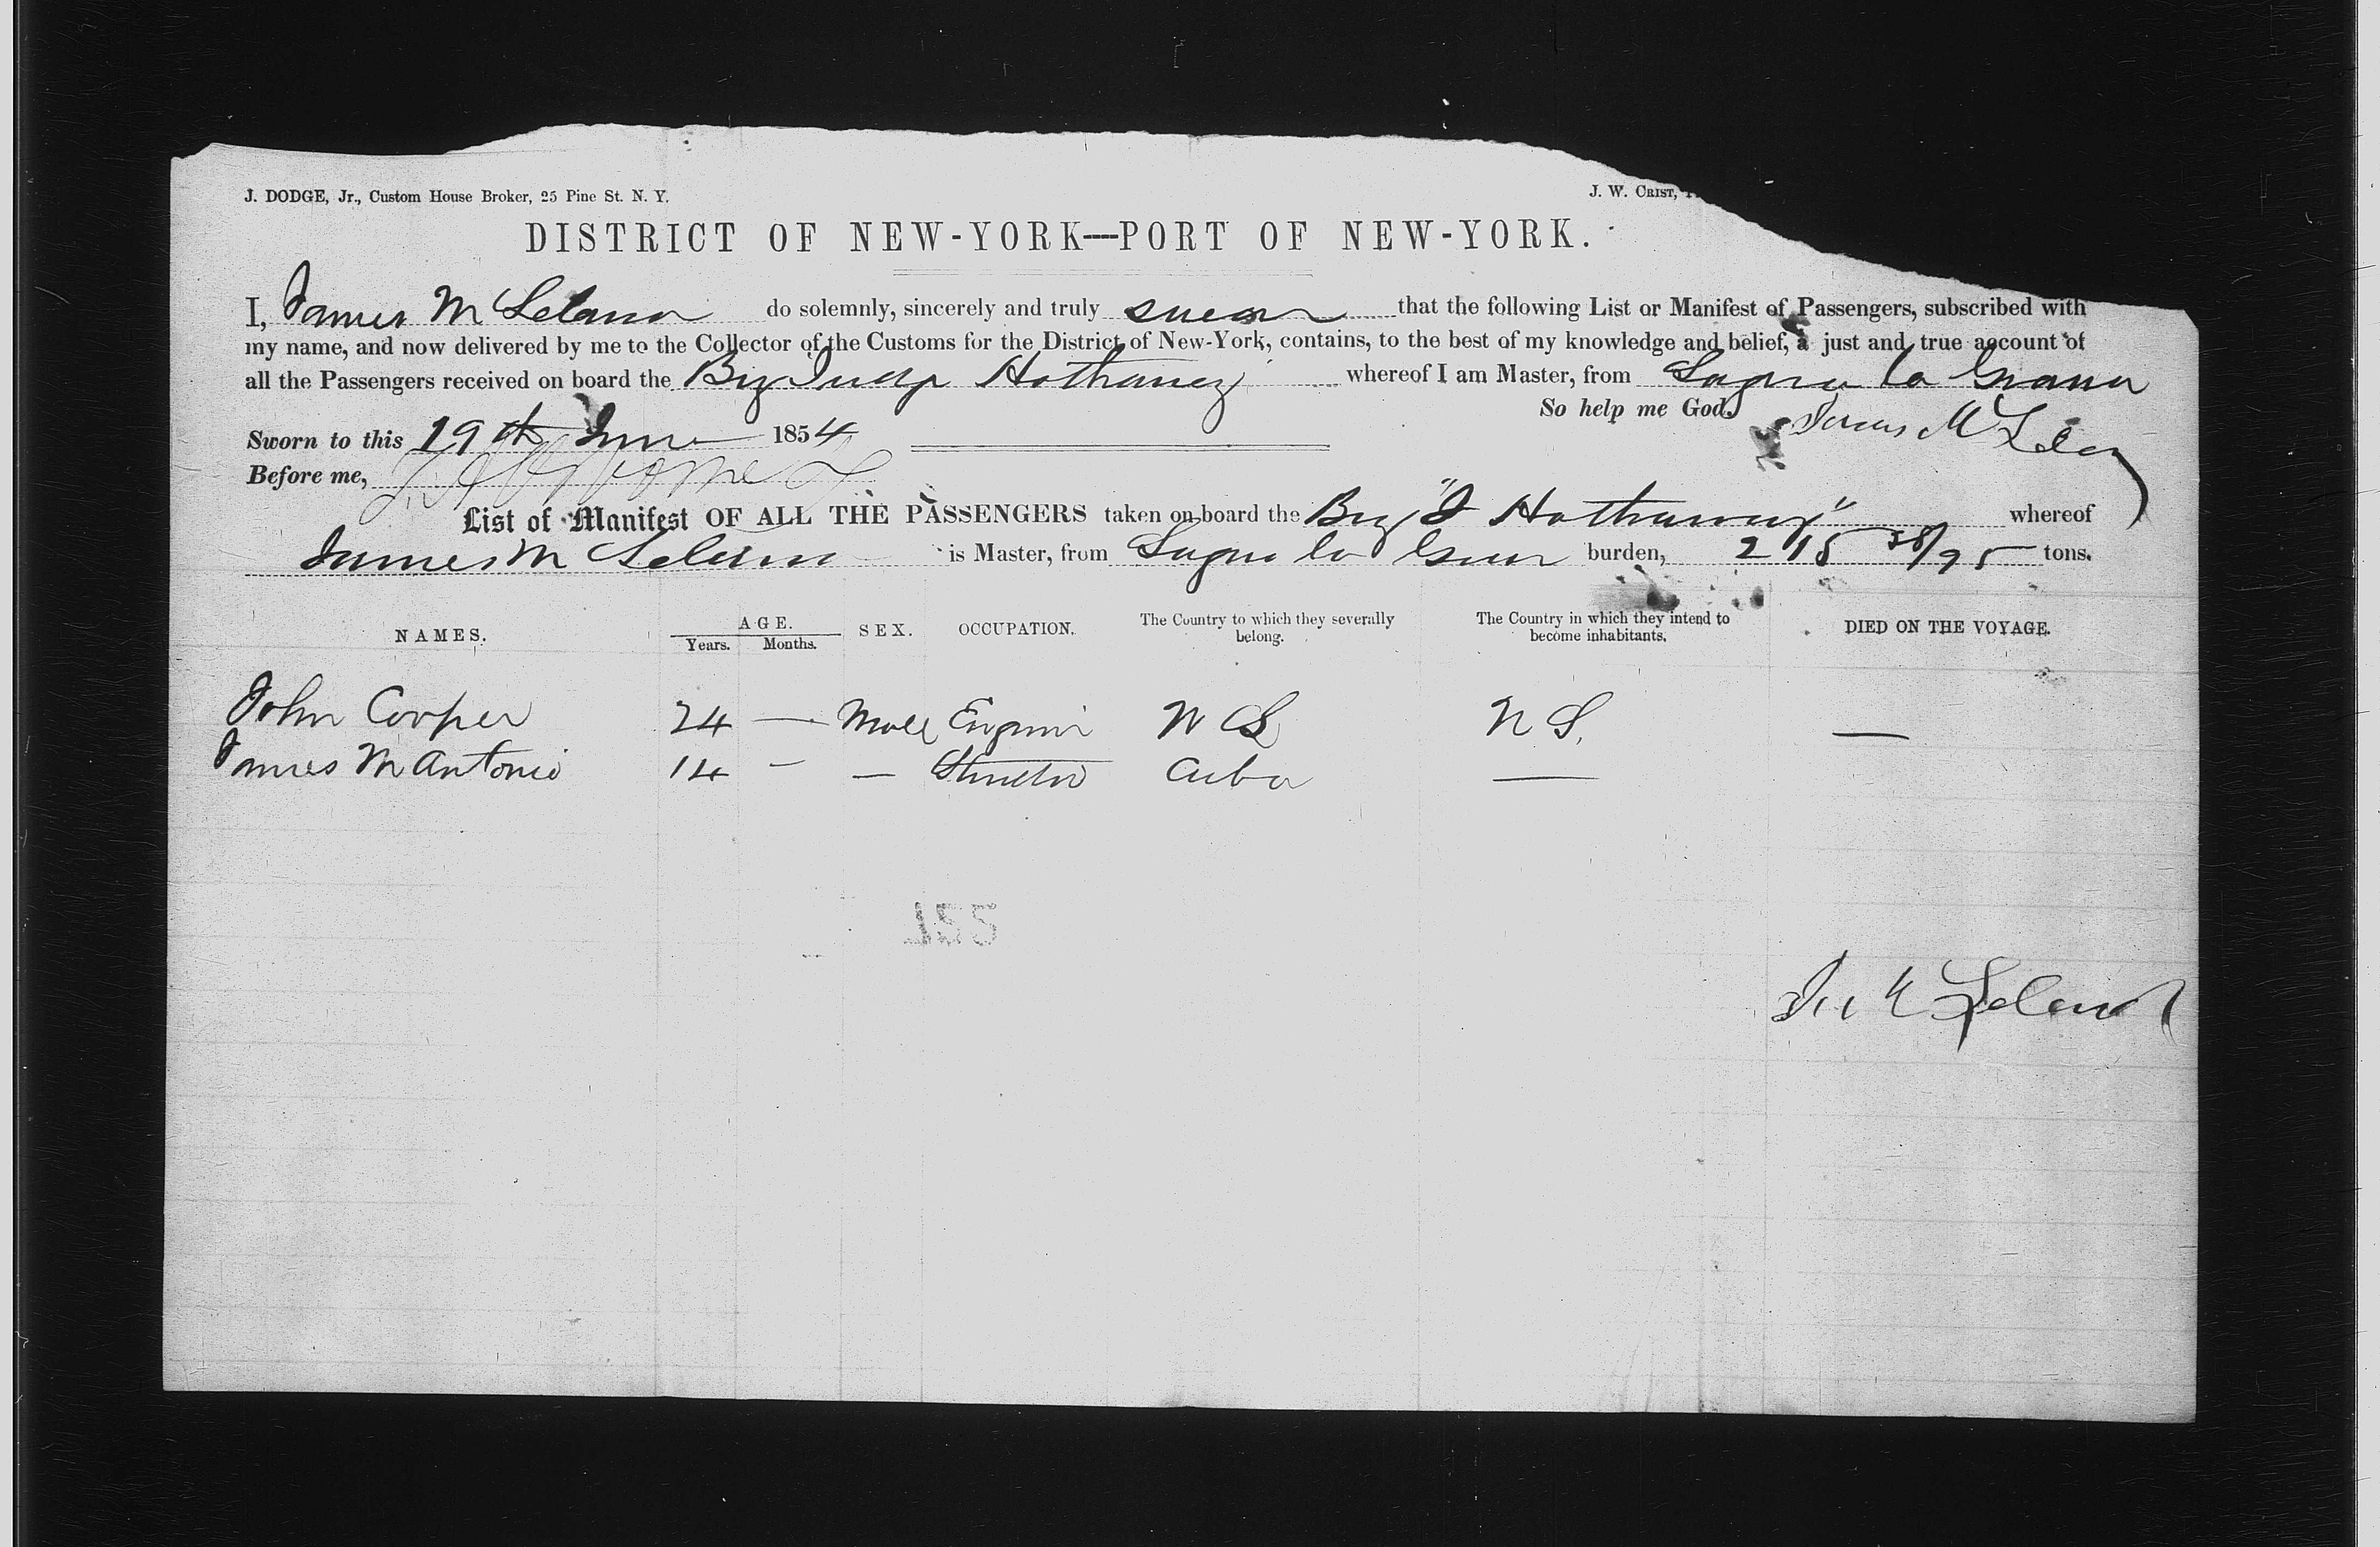 J. DODGE, Jr., Custom House Broker, 25 Pine St. N. Y.
J. W. CRIST,
DISTRICT OF NEW-YORK—PORT OF NEW-YORK.
I, James M Leland do solemnly, sincerely and truly swear that the following List or Manifest of Passengers, subscribed with
my name, and now delivered by me to the Collector of the Customs for the District of New-York, contains, to the best of my knowledge and belief, a just and true account of
all the Passengers received on board the Brig Judge Hathaway whereof I am Master, from Sagua la Grand
So help me God.
James M Leland
Sworn to this 19th June 1854
Before me,
List of Manifest OF ALL THE PASSENGERS taken on board the Brig "J Hathaway" whereof
James M Leland is Master, from Sagua la Gran burden, 215 38/95 tons.
NAMES. AGE. SEX. OCCUPATION. The Country to which they severally belong. The Country in which they intend to become inhabitants. DIED ON THE VOYAGE.
Years. Months.
John Cooper 24 — Male Engineer — 
James M Antonio 14 - — Cuba —
155
Leland